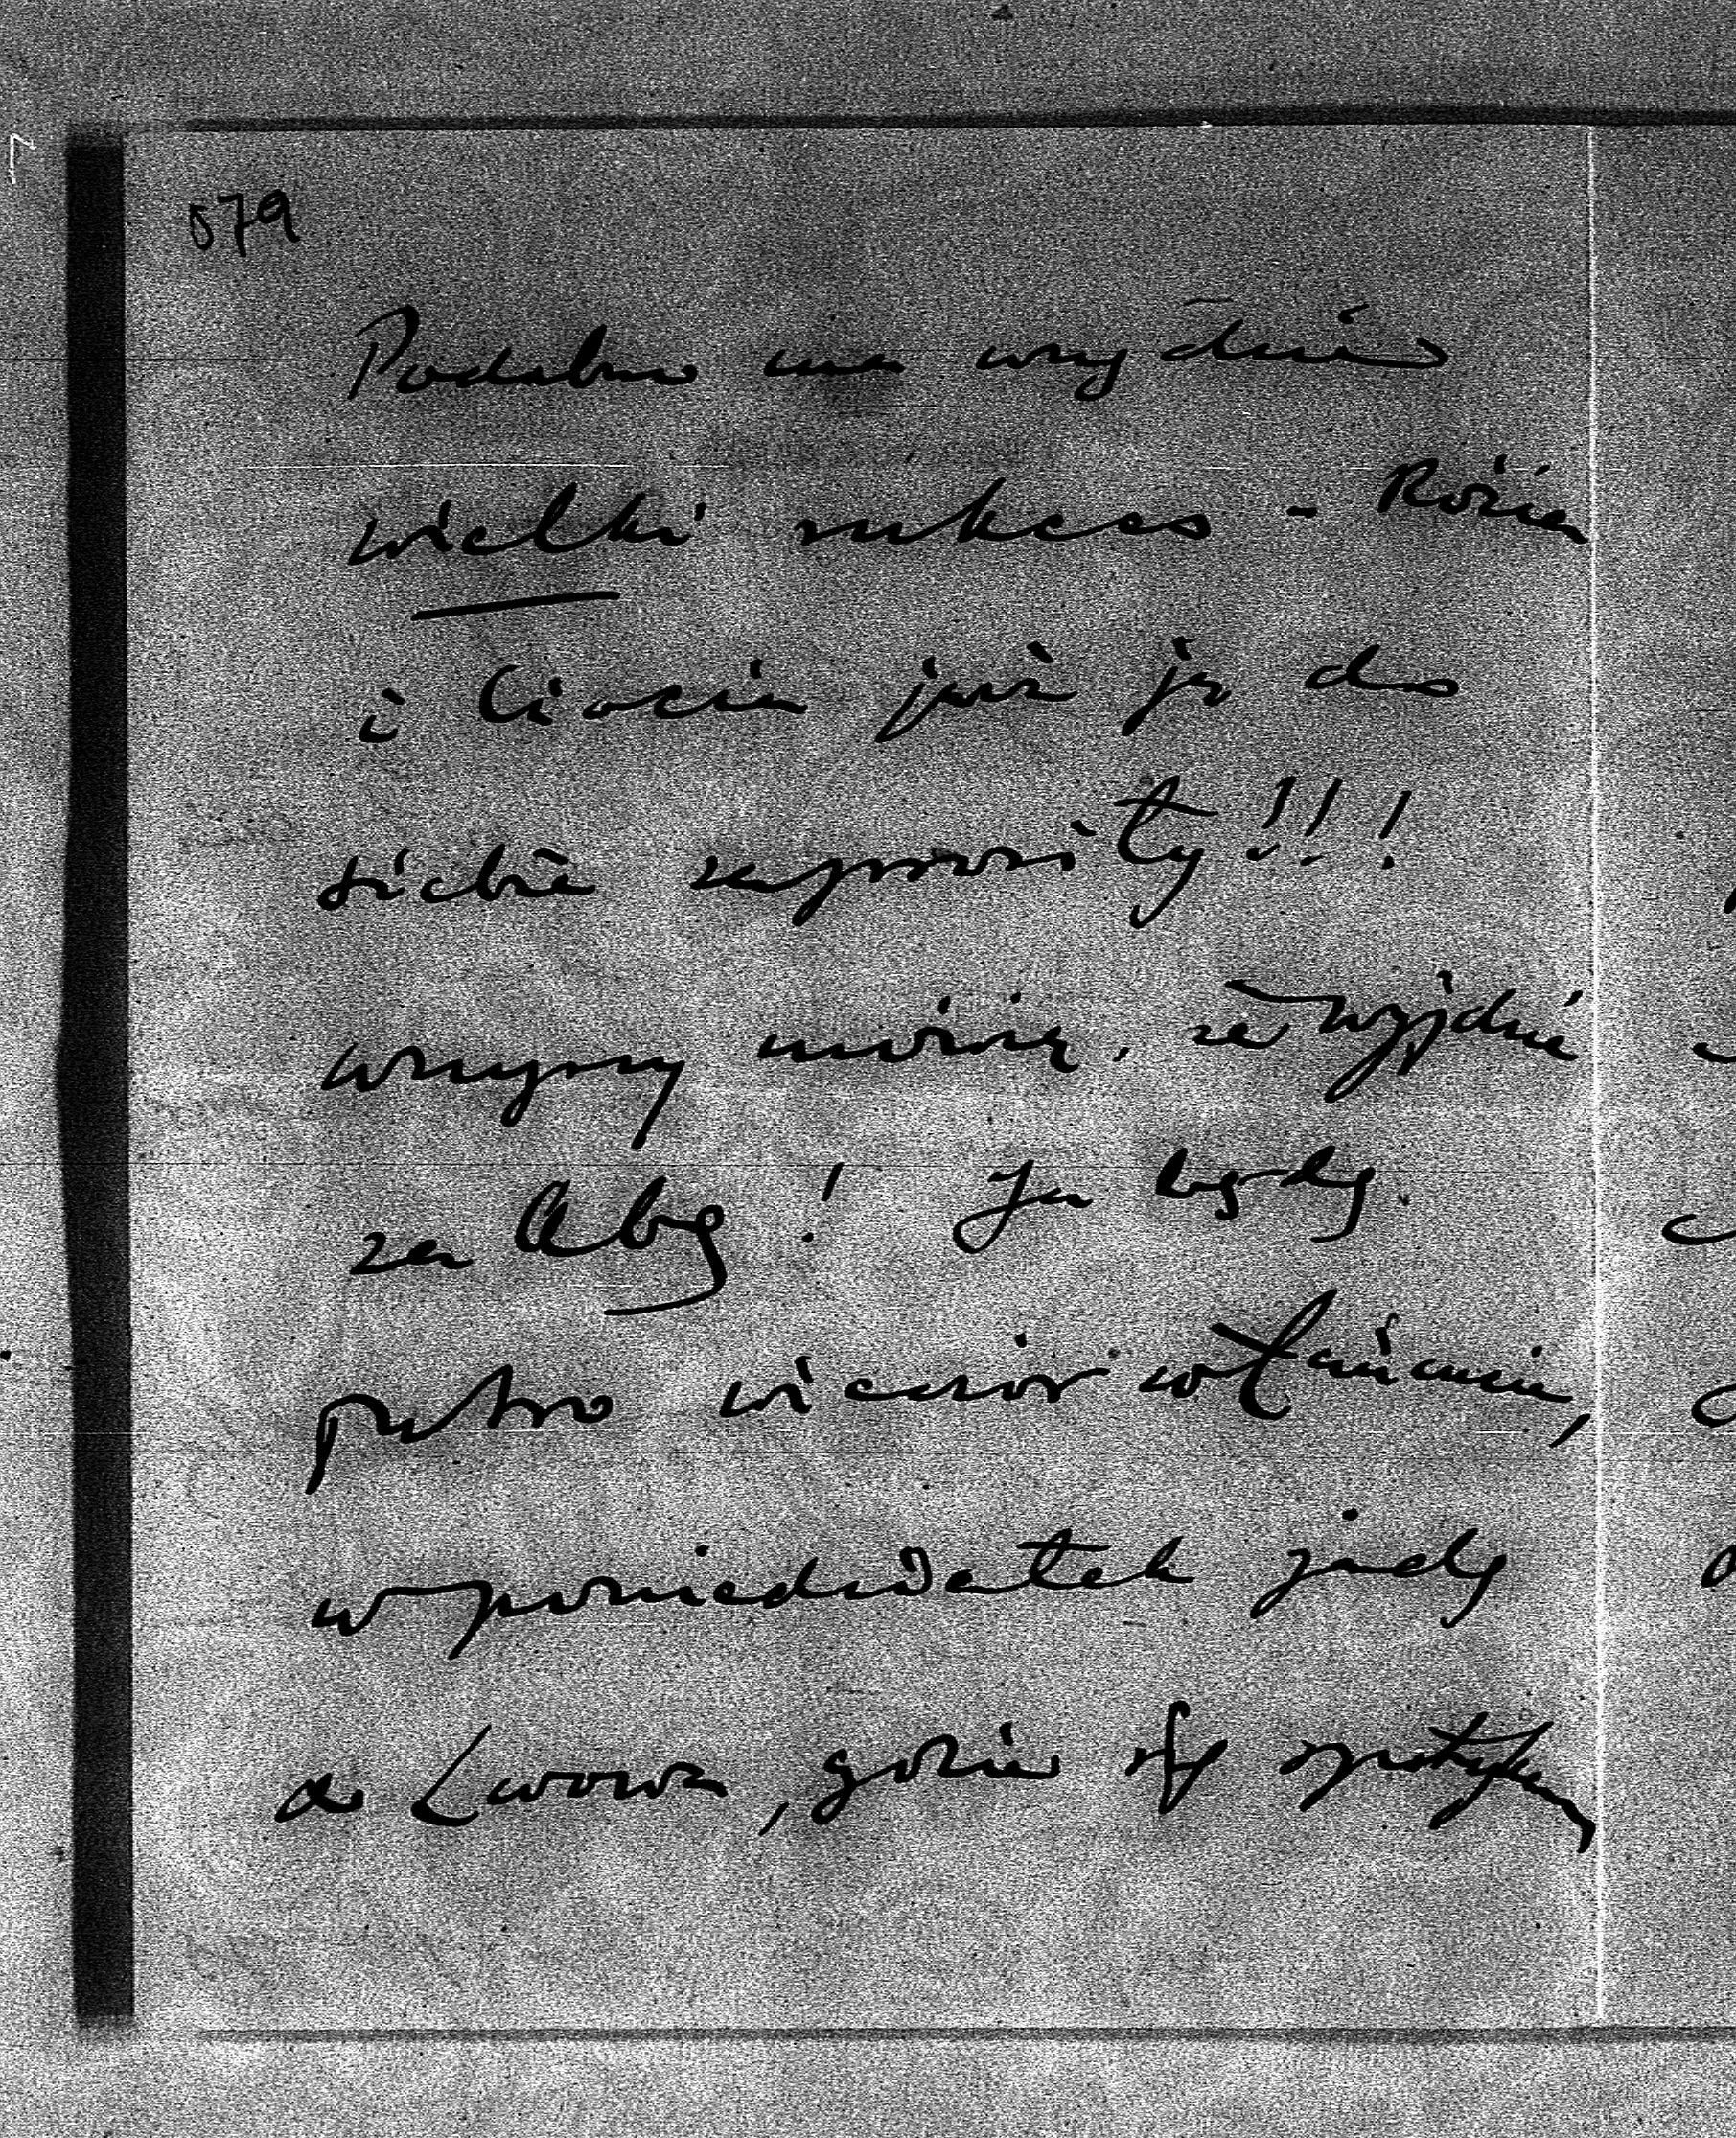 579
Podobno ma wszędzie
wielki sukces - Rózia
i Ciocia już ją do
siebie zaprosiły!!!
wszyscy mówią, że wyjdzie
za Abg! Ja będę
jutro wieczór w Łańcucie,
w poniedziałek jadę
do Lwowa, gdzie się spotykam